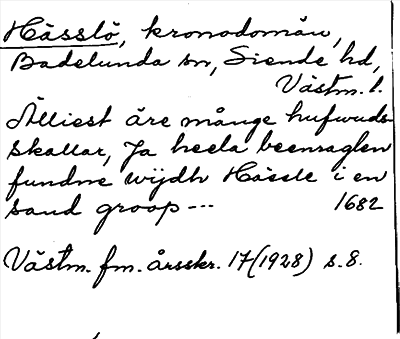 Hässlö, kronodomän,
Badelunda sn, Siende hd,
Västm. l.
Älliest äre månge hufwuds-
skallar, Ja heela beenraglen
fundne wijdh Hässle i en
sand groop ---  1682
Västm. fm. årsskr. 17 (1928) s. 8.